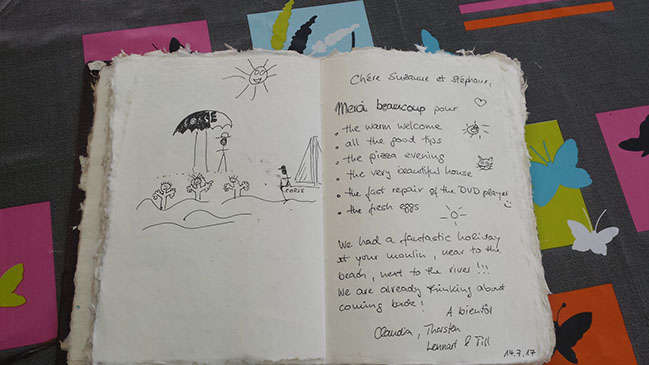 CORSE
CORIS
Chère Suzanne et Stéphane,
Merci beaucoup pour
• the warm welcome
• all the good tips
• the pizza evening
• the very beautiful house
• the fast repair of the DVD player
• the fresh eggs
We had a fantastic holiday
at your moulin, near to the
beach, next to the river !!!
We are already thinking about
coming back!
A bientôt
Claudia, Thorsten
Lennart & Till
14.7.17